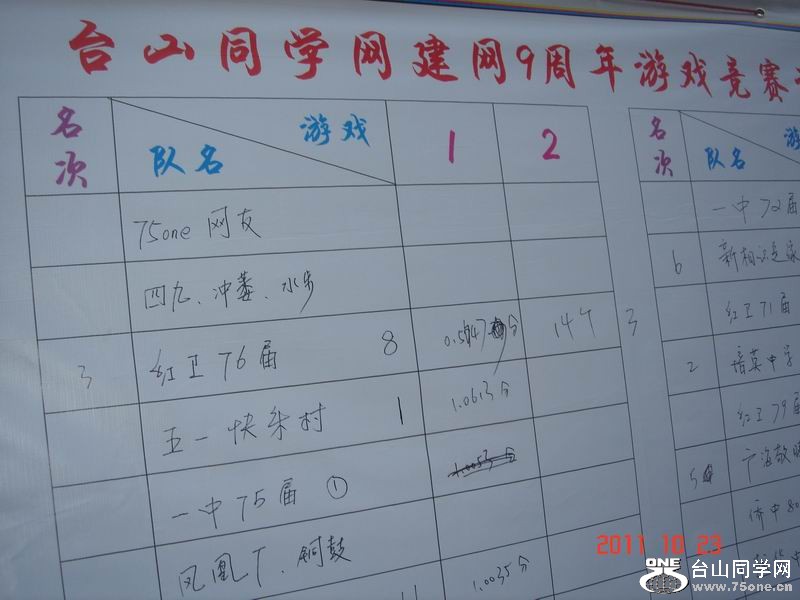 台山同学网建网9周年游戏竞赛
名次
游戏
队名
1
2
75one 网友
四九、冲蒌、水步
3 红卫76届 8 分 14个 3
五一快乐村 1 1.0613分
一中75届 ①
凤凰丁、铜鼓 1.0035分
名次
游
队名
一中72届
6 新相识是
红卫71届
2 培英中学
红卫79届
5 广海
侨中80
2011 10 23
ONE
台山同学网
www.75one.cn